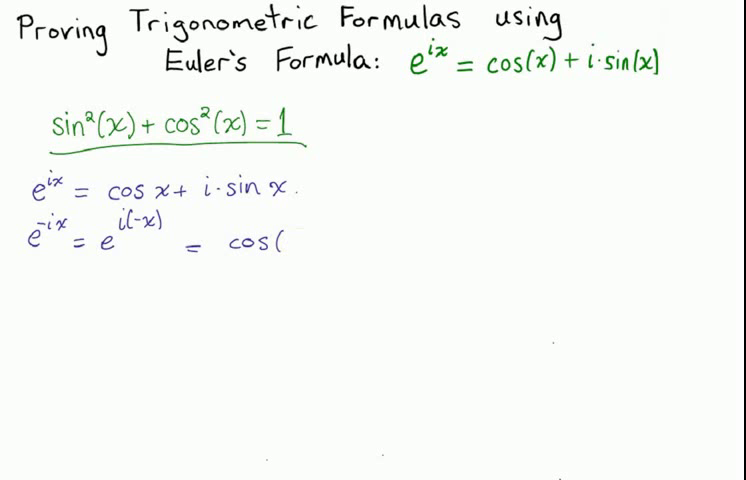 Proving Trigonometric Formulas using
Euler's Formula: e^{ix} = cos(x) + i·sin(x)
sin²(x) + cos²(x) = 1
e^{ix} = cos x + i·sin x.
e^{-ix} = e^{i(-x)} = cos(